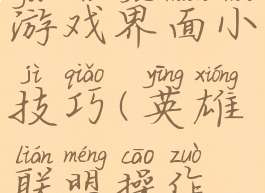 游戏界面小
jì qiǎo yīng xióng
技巧(英雄
lián méng cāo zuò
联盟操作